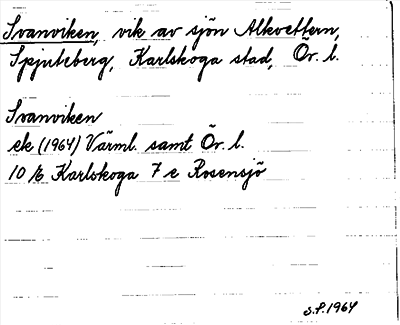 Svanviken, vik av sjön Alkvettern,
Spjuteberg, Karlskoga stad, Ör. l.
Svanviken
ek (1964) Värml. samt Ör. l.
10 /6 Karlskoga 7 e Rosensjö
S.P. 1964